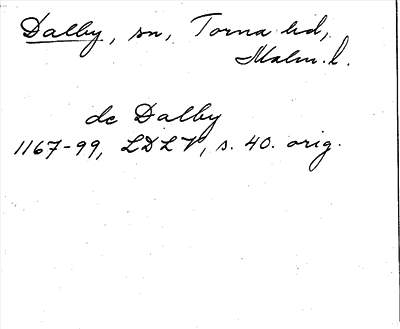 Dalby, sn, Torna hd,
Malm. l.
de Dalby
1167-99, LDLV, s. 40. orig.